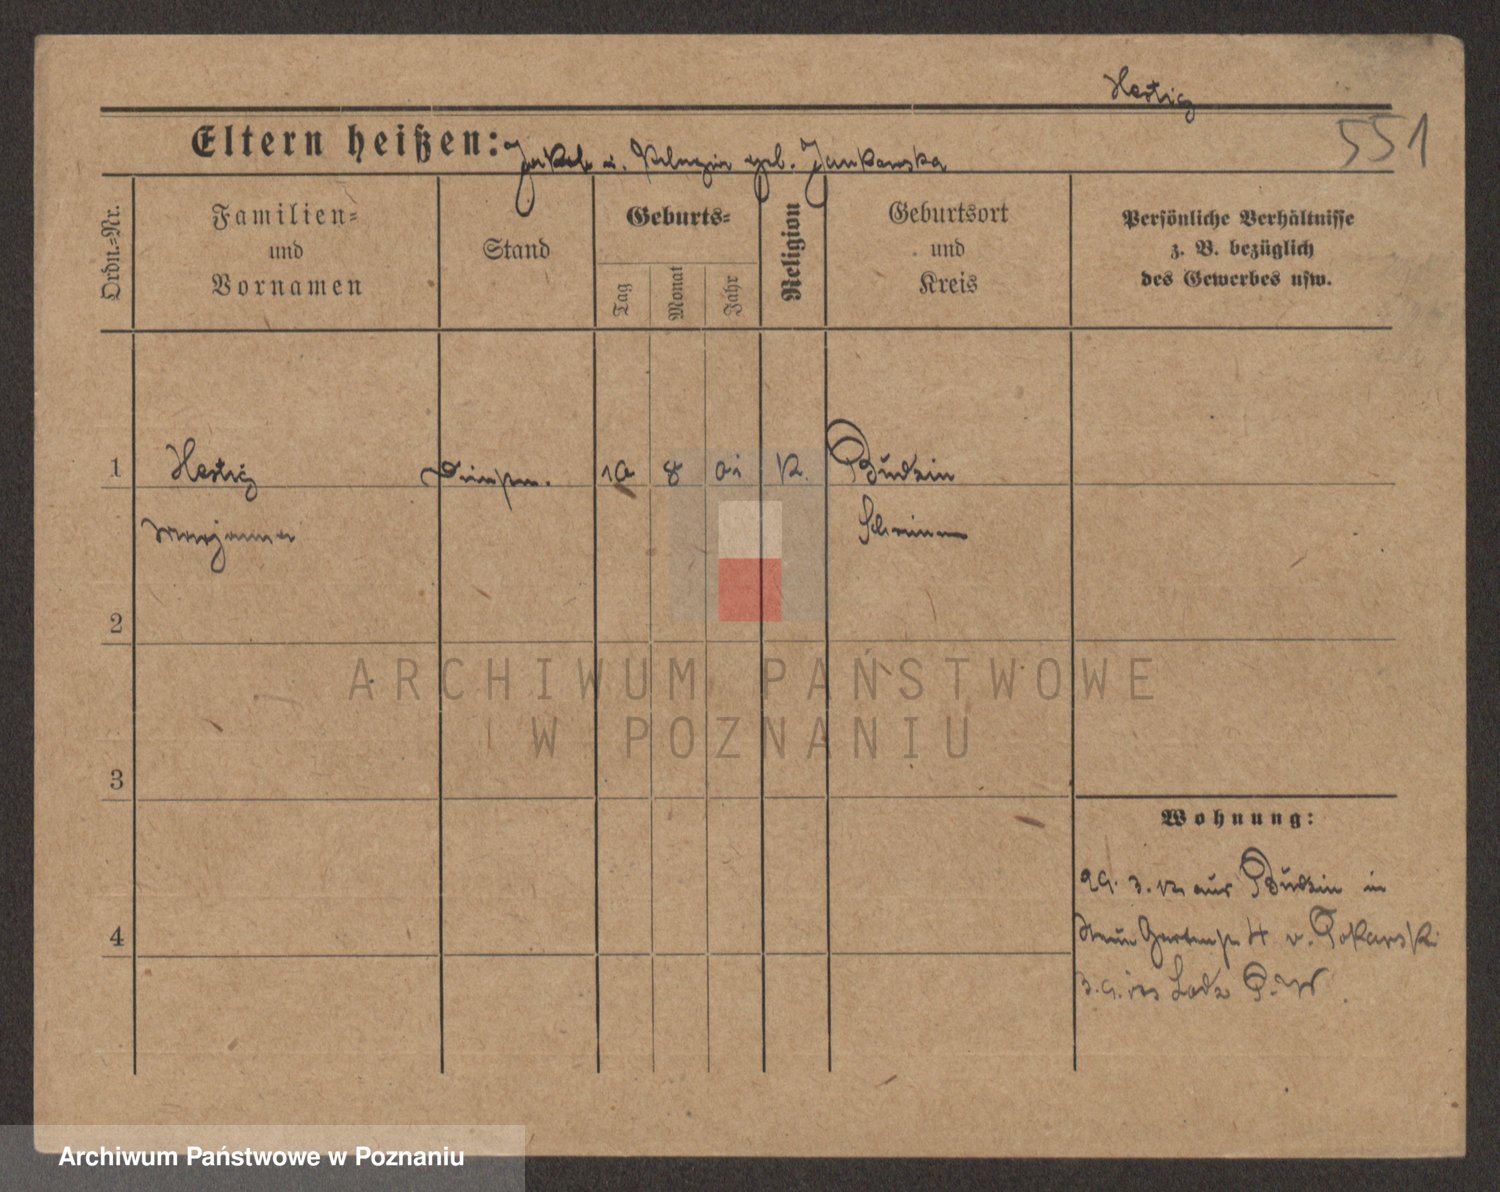 Hertig
551
Eltern heißen: Jakob u. Pelagia geb. Jankowska
Ordn.-Nr.
Familien-
und
Vornamen
Stand
Geburts-
Tag
Monat
Jahr
Religion
Geburtsort
und
Kreis
Persönliche Verhältnisse
z. B. bezüglich
des Gewerbes usw.
1
Hertig
8
K.
Budzin
Marjanna
Schrimm
2
ARCHIWUM PAŃSTWOWE
W POZNANIU
3
Wohnung:
29. 3. aus Budzin in
Neue Gartenstr 4 v. Tokarski
Lodz P. W.
4
Archiwum Państwowe w Poznaniu